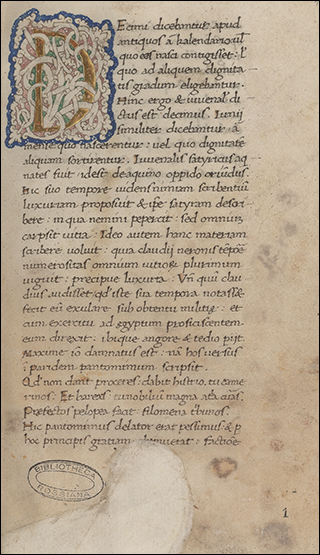 D Ecimi dicebantur apud
antiquos a kalendario ul
quo eos nasci contigisset: ł
quo ad aliquem dignita
tis gradum eligebantur.
Hinc ergo & iuuenał di
ctus est decimus. Iunij
similiter dicebantur a
mense quo nascerentur: uel quo dignitate
aliquam sortirentur. Iuuenalis satyricus aq
nates fuit idest de aquino oppido oriundus.
hic suo tempore uidens nimium scribentiũ
luxuriam proposuit & ipe satyram descri
bere: in qua nemini pepercit: sed omniũ
carpsit uitia. Ideo autem hanc materiam
scribere uoluit: quia claudij neronis tẽpoẽ
numerositas omnium uitioꝝ plurimum
uiguit: precipue luxuria. Vñ quũ clau
dius audisset qd iste sua tempora notasset
fecit eũ exulare sub obtentu militie: et
cum exercitu ad egyptum proficiscentem
eum direxit: ibique angore & tedio pijt.
Maxime iõ damnatus est: nã hos uersus
ĩ paridem pantomimum scripsit.
Qd non dant proceres: dabit histrio, tu came
rinos. Et bareas tu nobiliũ magna atria curas.
Prefectos pelopea facit: filomena tbunos.
Hic pantomimus delator erat pessimus: & p
hoc principis gratiam:
BIBLIOTHECA
ROSSIANA
1